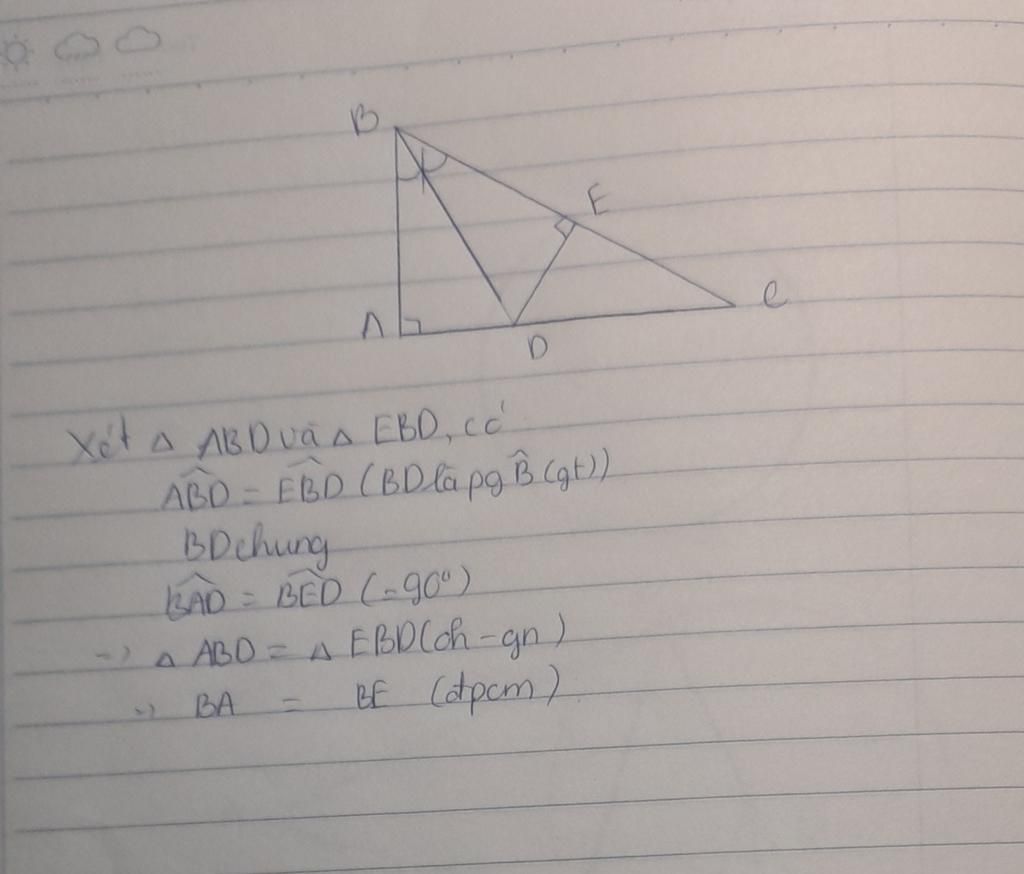 B
E
A
D
C
Xét Δ ABD và Δ EBD, có
\widehat{ABD} = \widehat{EBD} (BD là pg \widehat{B} (gt))
BD chung
\widehat{BAD} = \widehat{BED} (=90°)
=> Δ ABD = Δ EBD (ch-gn)
=> BA = BE (đpcm)